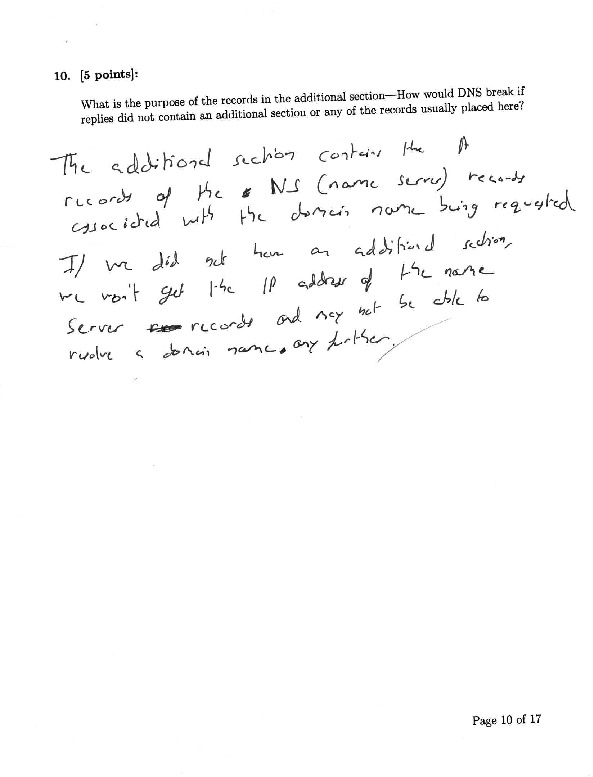 10. [5 points]:
What is the purpose of the records in the additional section—How would DNS break if
replies did not contain an additional section or any of the records usually placed here?
The additional section contains the A
records of the NS (name server) records
associated with the domain name being requested
If we did not have an additional section,
we won't get the IP address of the name
server records and may not be able to
resolve a domain name any further.
Page 10 of 17